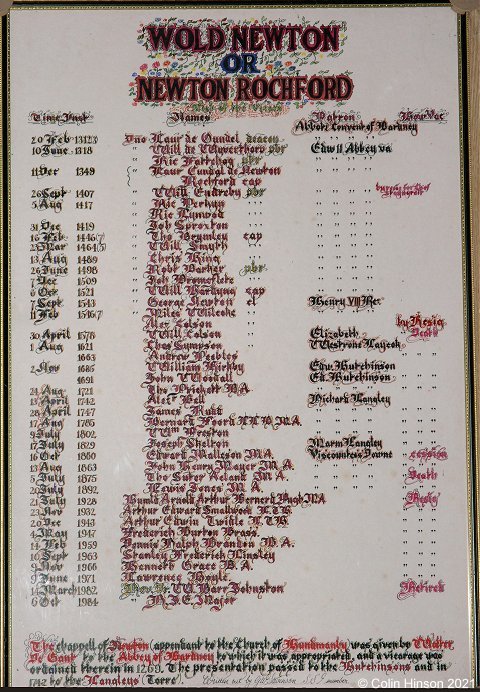 WOLD NEWTON
OR
NEWTON ROCHFORD
List of the Vicars
Time Inst Names Patron How Vac
Abbot Convent of Bardney
20 Feb 1312/3 Dno Laur de Gundel deacon
10 June 1318 " Will de Wlwerthorp pbr Edw II Abbey va
" Ric Fattehog pbr
11 Dec 1349 " Laur Cundal de Newton
Rochford cap
26 Sept 1407 " Will Enderby pbr
5 Aug 1417 " Ric Derkyn
" Ric Lynwod
31 Dec 1419 " Joh Sproxton
16 Feb 1446/7 " Tho Brymley cap
23 Mar 1464/5 " Will Smyth
13 Aug 1489 " Chris King
26 June 1498 " Robt Barker pbr
7 Dec 1509 " Joh Bromeflete
6 Oct 1521 " Will Hardyng cap
7 Sept 1543 " George Newton cl Henry VIII Re.
11 Feb 1546/7 " Miles Wilcocke
" Alex Colson by Resig
30 April 1578 " Will Colson Elizabeth Death
1 Aug 1621 " Thos Sympson Westrone Laycok
1663 Andrew Peebles
2 Nov 1685 William Kirkby Edw Hutchinson
1691 John Woodall Ed. Hutchinson
24 Aug 1721 Tho Prickett B.A.
13 April 1742 Alexr Bell Richard Langley
28 April 1747 James Rudd
17 Aug 1785 Bernard Foord L L B M.A.
9 July 1802 Wm Preston
17 July 1829 Joseph Skelton Marm Langley
16 Oct 1860 Edward Malleson M.A. Viscountess Downe cession
13 Aug 1863 John Henry Mayer M.A.
5 July 1875 Tho Sutor Ackland M.A. Death
20 July 1892 Lewis Jones M.
21 July 1928 Humld Arnold Arthur Bernard Pugh M.A Resig
23 Nov 1932 Arthur Edward Smallwood L.T.H.
20 Dec 1943 Arthur Edwin Twidle L.T.H.
4 May 1947 Frederick Burton Brass.
14 Feb 1959 Dennis Ralph Brandon B.A.
10 Sept 1963 Stanley Frederick Linsley
9 Nov 1966 Kenneth Grace B.A.
9 June 1971 Lawrence Boyle
14 March 1982 Rev. Dr. W. Barr Johnston Retired
6 Oct 1984 A.S.E. Major
The chappell of Newton (appendant to the Church of Hundmanby) was given by Walter
De Gant to the Abbey of Bardney to which it was appropriated, and a vicarage was
ordained therein in 1269. The presentation passed to the Hutchinsons and in
1742 to the Langleys (Torre).
© Colin Hinson 2021